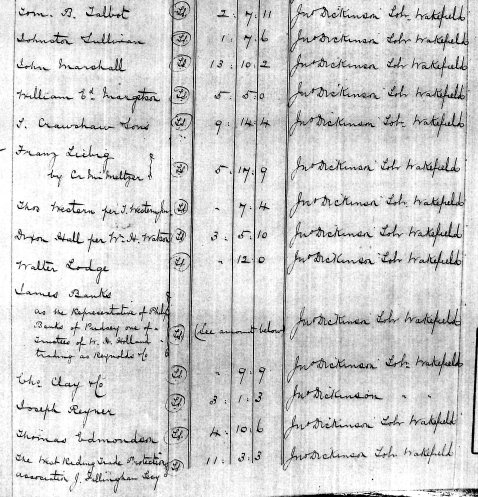 Tom. B. Talbot 2 . 7 . 11 Jno Dickinson Solr Wakefield
Johnston Sullivan 1 . 7 . 6 Jno Dickinson Solr Wakefield
John Marshall 13 . 10 . 2 Jno Dickinson Solr Wakefield
William Ed. Margetson 5 . 5 . 0 Jno Dickinson Solr Wakefield
Crawshaw Sons 9 . 14 . 4 Jno Dickinson Solr Wakefield
Franz Liebig
by C. Meltzer 5 . 17 . 9 Jno Dickinson Solr Wakefield
Thos Western per J. - 7 . 4 Jno Dickinson Solr Wakefield
Dixon Hall per Wm. H. Watson 3 . 5 . 10 Jno Dickinson Solr Wakefield
Walter Lodge - 12 . 0 Jno Dickinson Solr Wakefield
James Banks
as the Representative of Philip
Banks of Pudsey one of
Trustees of W. H. Holland (See amount below) Jno Dickinson Solr Wakefield
trading as Reynolds & Co
Chs Clay & Co - 9 . 9 Jno Dickinson Solr Wakefield
Joseph Reyner 3 . 1 . 3 Jno Dickinson " "
Thomas Edmondson 4 . 10 . 6 Jno Dickinson Solr Wakefield
The West Riding Trade Protection 11 . 3 . 3 Jno Dickinson Solr Wakefield
association J. Fillingham Secy